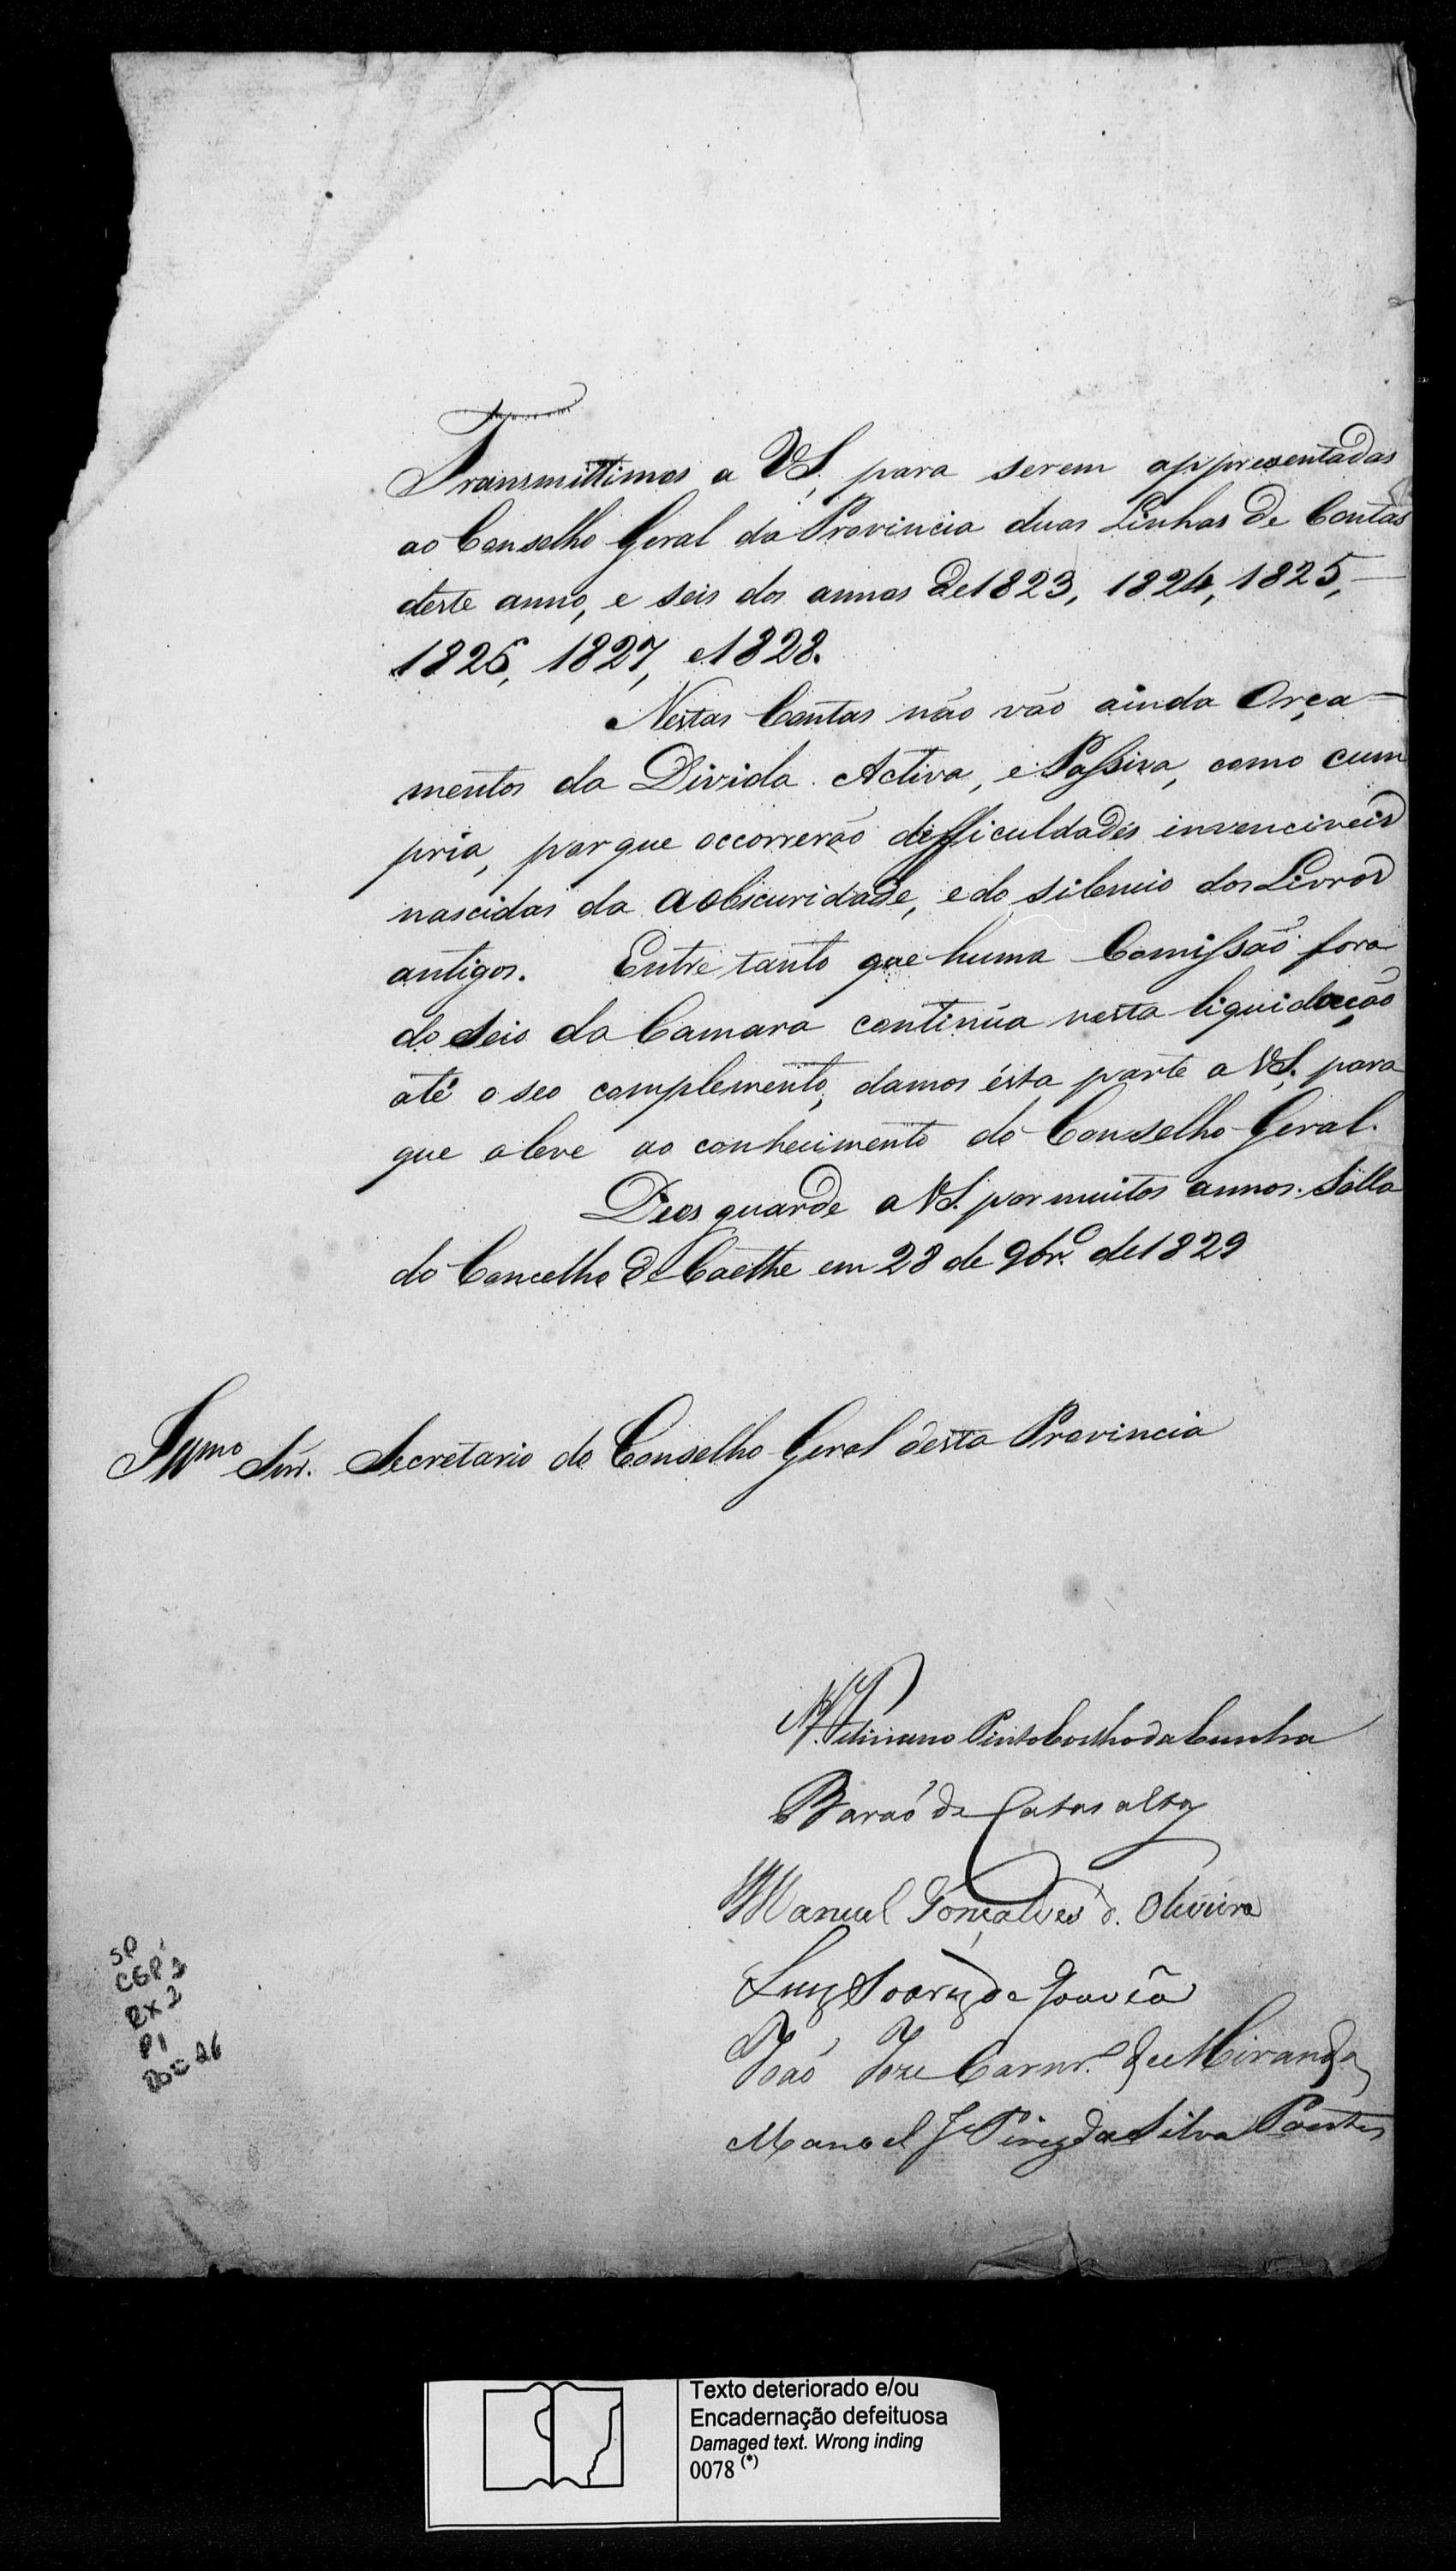 Transmittimos a VS. para serem appresentadas
ao Conselho Geral da Provincia duas Linhas de Contas
deste anno, e seis dos annos de 1823, 1824, 1825,
1826, 1827, e 1828.
Nestas Contas não vão ainda Orça-
mentos da Divida Activa, e Passiva, como cum
pria, porque occorrerão difficuldades invenciveis
nascidas da obscuridade, e do silencio dos Livros
antigos. Entre tanto que huma Comissão fora
do seio da Camara continúa nesta liquidação
até o seo complemento, damos ésta parte a VS. para
que a leve ao conhecimento do Conselho Geral.
Deos guarde a VS. por muitos annos. Salla
do Concelho de Caethe em 28 de 9br.º de 1829
Illmo Snr. Secretario do Conselho Geral desta Provincia
Pinto Coelho da Cunha
Barão de Catas altas
Manuel Gonçalves d. Oliveira
Luiz Soares de Gouvêa
João Joze Carnr.º de Miranda
Manoel Je Pires da Silva Pontes
SP
CGP1
CX2
P1
DOC 26
Texto deteriorado e/ou
Encadernação defeituosa
Damaged text. Wrong inding
0078 (*)